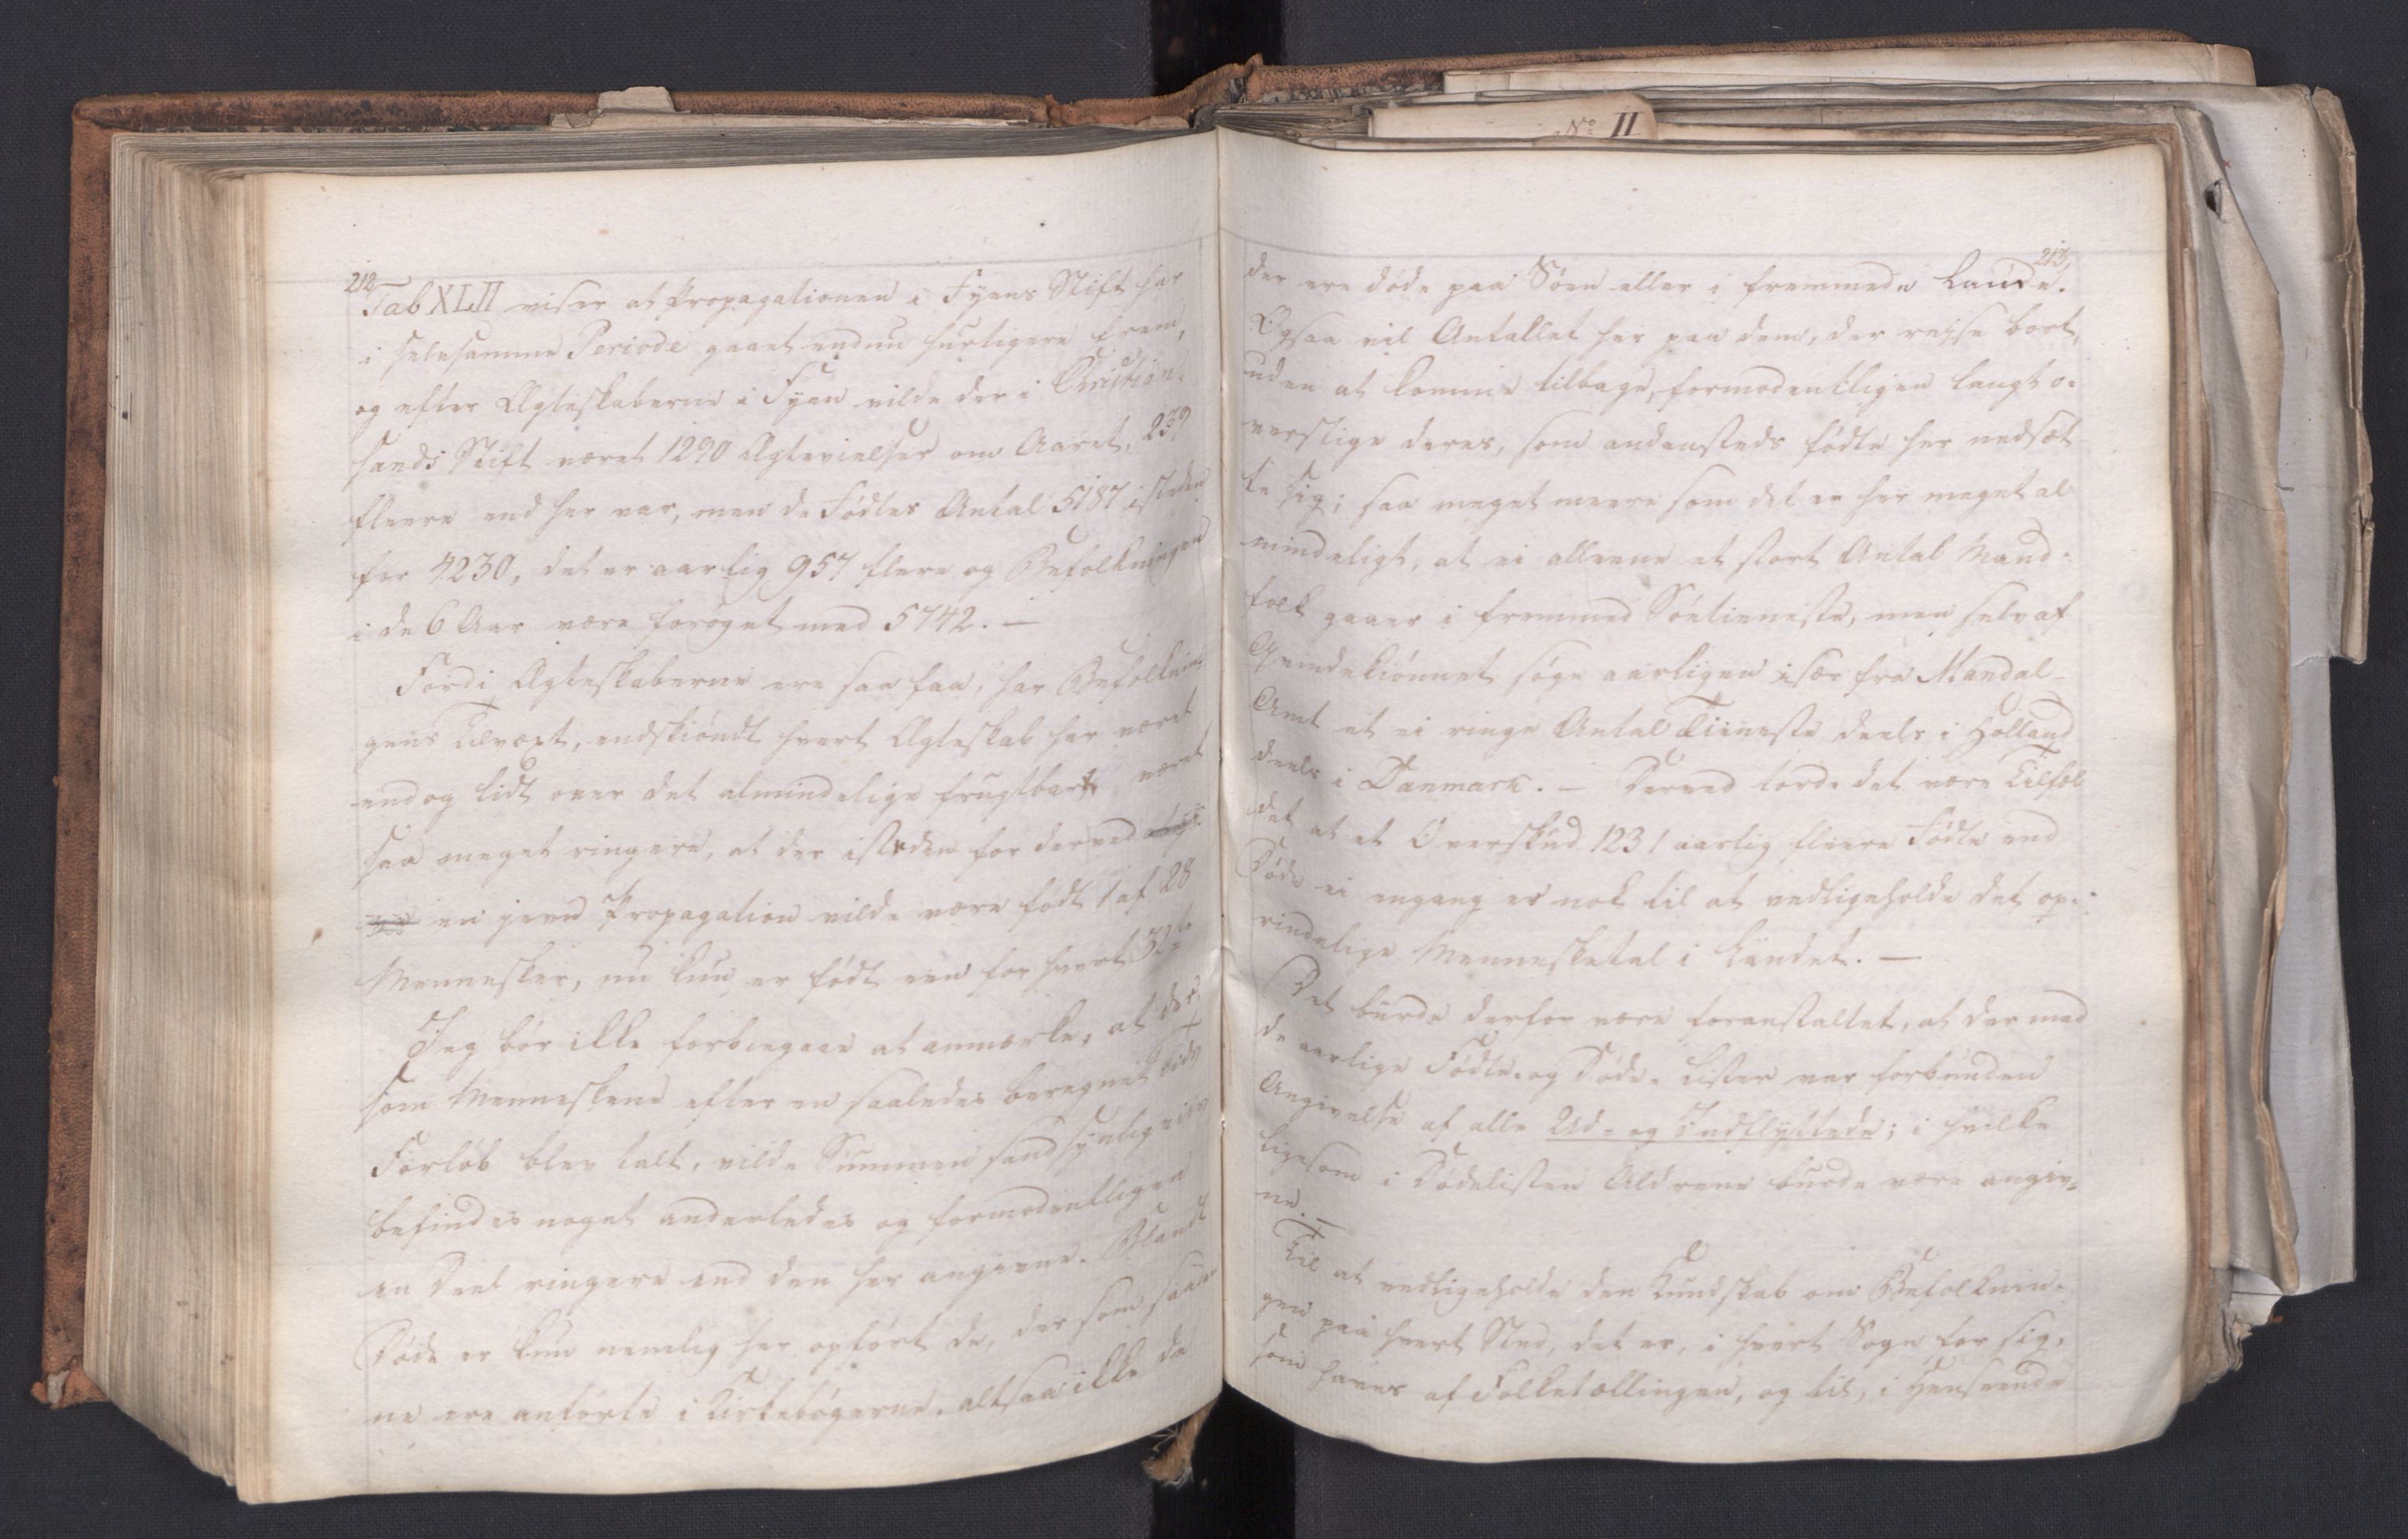 No II
212
Tab XLII viser at Propagationen i Fyens Stift har
i selvsamme Periode gaaet endnu hurtigere frem,
og efter Ægteskaberne i Fyen vilde der i Christian-
sands Stift været 1290 Ægtevielser om Aaret, 239
fleere end her var, men de Fødtes Antal 5187 isteden
for 4230, det er aarlig 957 flere og Befolkningen
i de 6 Aar være forøget med 5742. —
Fordi Ægteskaberne ere saa faa, har Befolknin-
gens Tilvæxt, endskiøndt hvert Ægteskab har været
endog lidt over det almindelige frugtbart, været
saa meget ringere, at der isteden for derved
en jevn Propagation vilde være født 1 af 28
Mennesker, nu kun er født een for hvert 32te
Jeg bør ikke forbiegaae at anmærke, at der-
som Menneskene efter en saaledes beregnet Tids
Forløb blev talt, vilde Summen sandsynligviis
befindes noget anderledes og formodentligen
en Deel ringere end den her angivne. Blandt
Døde er kun nemlig her opført de, der som saada-
ne ere anførte i Kirkebøgerne, altsaa ikke de
213
der ere døde paa Søen eller i fremmede Lande.
Ogsaa vil Antallet her paa dem, der reise bort,
uden at komme tilbage, formodentligen langt o-
verstige deres, som andensteds fødte her nedsæt-
te sig; saa meget meere som det er her meget al-
mindeligt, at ei alleene et stort Antal Mand-
folk gaaer i fremmed Søetieneste, men selv af
Qvindekiønnet søge aarligen især fra Mandal-
Amt et ei ringe Antal Tieneste deels i Holland
deels i Danmark. — Derved torde det være Tilfæl-
det at et Overskud 1231 aarlig fleere Fødte end
Døde ei engang er nok til at vedligeholde det op-
rindelige Mennesketal i Landet. —
Det burde derfor være foranstaltet, at der med
de aarlige Fødte- og Døde-Lister var forbunden
Angivelse af alle Ud- og Indflyttede; i hvilke
ligesom i Dødelisten Aldrene burde være angiv-
ne. —
Til at vedligeholde den Kundskab om Befolknin-
gen paa hvert Sted, det er, i hvert Sogn for sig,
som haves af Folketællingen, og til, i Henseende